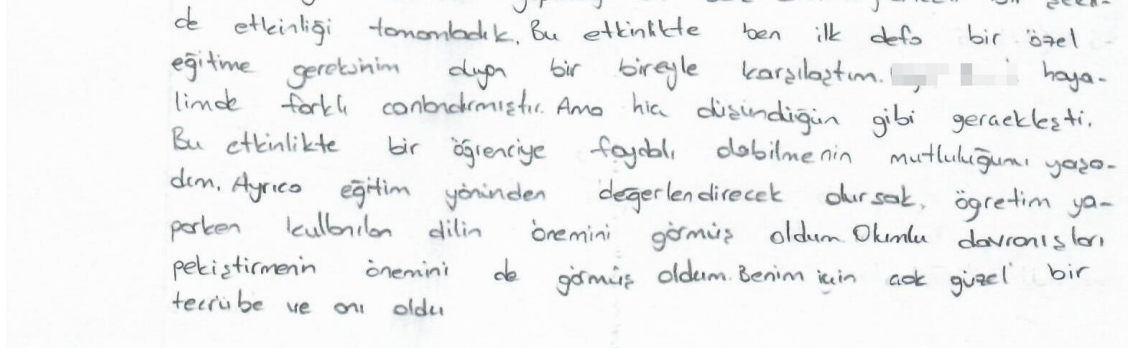 de etkinliği tamamladık. Bu etkinlikte ben ilk defa bir özel
eğitime gereksinim duyan bir bireyle karşılaştım. haya-
limde farklı canlandırmıştır. Ama hic düşindiğün gibi gerçekleşti.
Bu etkinlikte bir öğrenciye faydalı olabilmenin mutluluğumı yaşa-
dım. Ayrıca eğitim yöninden değerlendirecek olursak, öğretim ya-
parken kullanılan dilin önemini görmüş oldum. Olumlu davranışları
pekiştirmenin önemini de görmüş oldum. Benim için çok güzel bir
tecrübe ve anı oldu